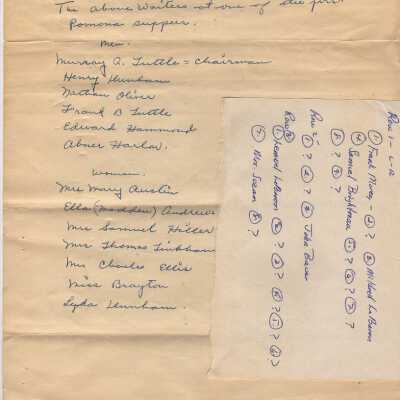 The above Waiters at one of the first
Pomona suppers.
men.
Murray A. Tuttle = Chairman
Henry Dunham
Nathan Oliver
Frank B Tuttle
Edward Hammond
Abner Harlow.
women.
Mrs Mary Austin
Ella (Madden) Andrews
Mrs Samuel Hiller
Mrs Thomas Tinkham
Mrs Charles Ellis
Miss Brayton
Lyda Dunham.
Row 1 - L-R
① Frank ② ? ③ Mildred LeBaron
④ Samuel Brightman ⑤ ? ⑥ ? ⑦ ?
⑧ ? ⑨ ?
Row 2 -
① ? ② ? ③ John
Row 3
① Lemuel LeBaron ② ? ③ ? ④ ? ⑤ ? ⑥ ?
⑦ Mrs. ⑧ ?